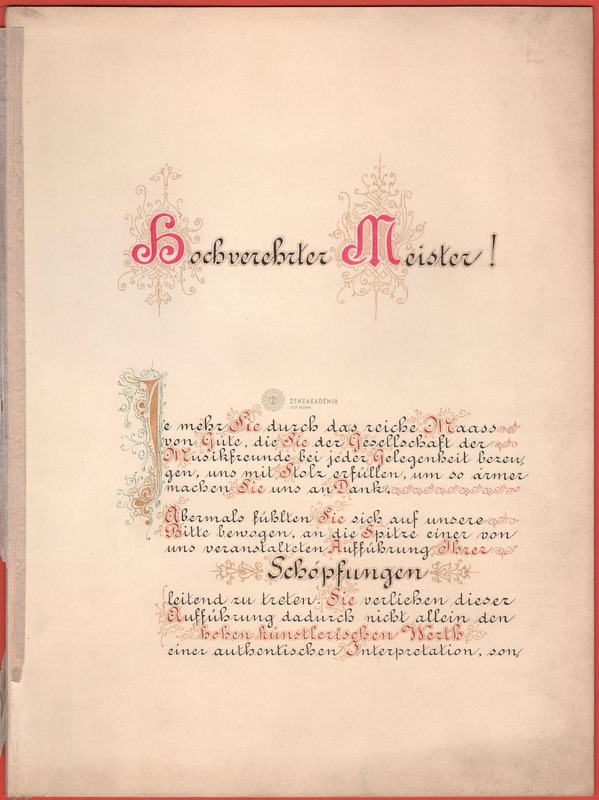 Hochverehrter Meister!
ZENEAKADÉMIA
LISZT MÚZEUM
Je mehr Sie durch das reiche Maass
von Güte, die Sie der Gesellschaft der
Musikfreunde bei jeder Gelegenheit bezeu,
gen, uns mit Stolz erfüllen, um so ärmer
machen Sie uns an Dank.
Abermals fühlten Sie sich auf unsere
Bitte bewogen, an die Spitze einer von
uns veranstalteten Aufführung Ihrer
Schöpfungen
leitend zu treten. Sie verliehen dieser
Aufführung dadurch nicht allein den
hohen künstlerischen Werth
einer authentischen Interpretation, son,